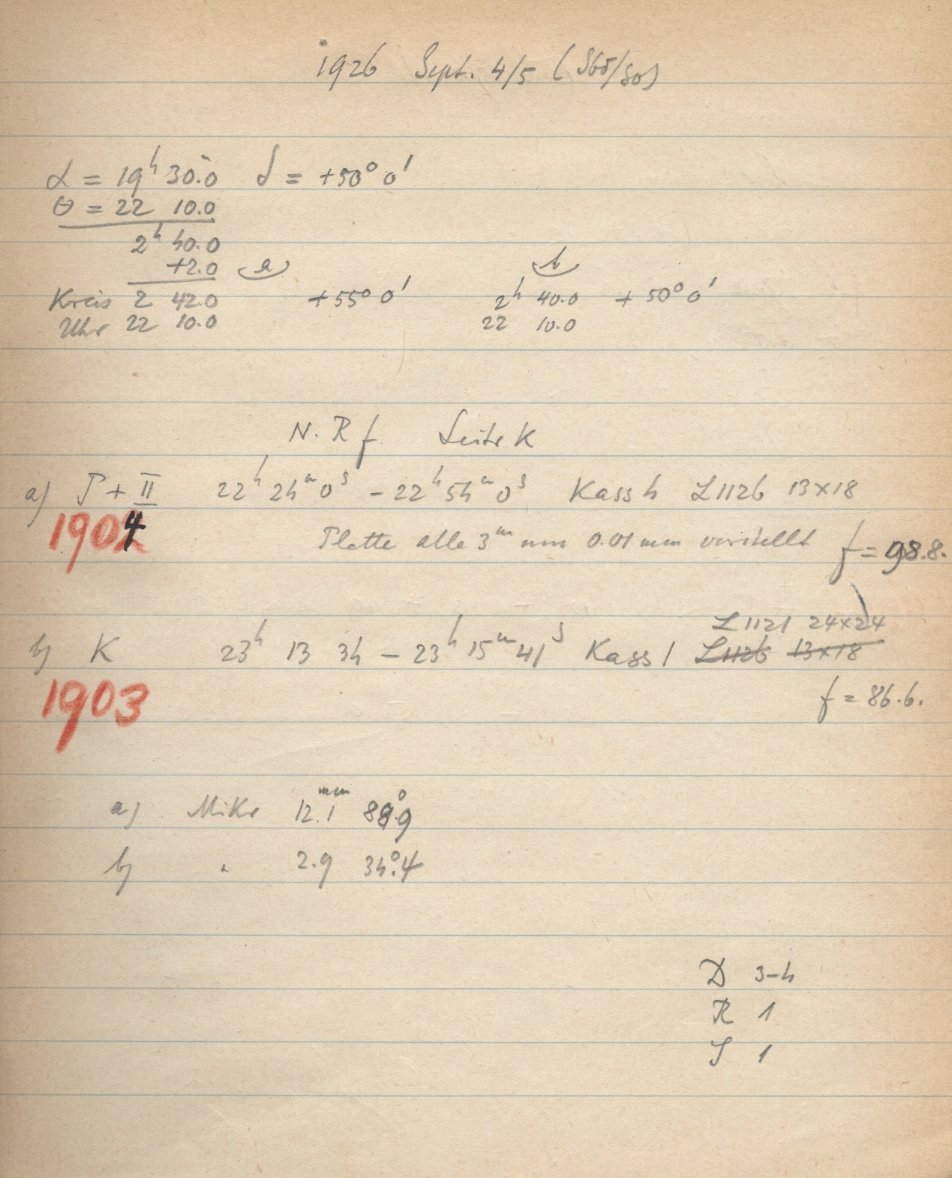 1926 Sept. 4/5 (Sbr/So)
α = 19ʰ 30ᵐ.0 δ = +50° 0'
θ = 22 10.0
2ʰ 40.0
+2.0 a
Kreis 2 42.0 +55° 0' b 2ʰ 40.0 + 50° 0'
Uhr 22 10.0 22 10.0
N. R f. Seite K
a) J + II 22ʰ 24ᵐ 0ˢ – 22ʰ 54ᵐ 0ˢ Kass 4 L1126 13×18
1904 Platte alle 3ᵐ um 0.01 mm verstellt f = 98.8.
L1121 24×24
b) K 23ʰ 13 34 – 23ʰ 15ᵐ 41ˢ Kass 1 L1126 13×18
1903 f = 86.6.
a) Mikr 12.1 ᵐᵐ 88°.9
b) " 2.9 34°.4
D 3–4
R 1
S 1